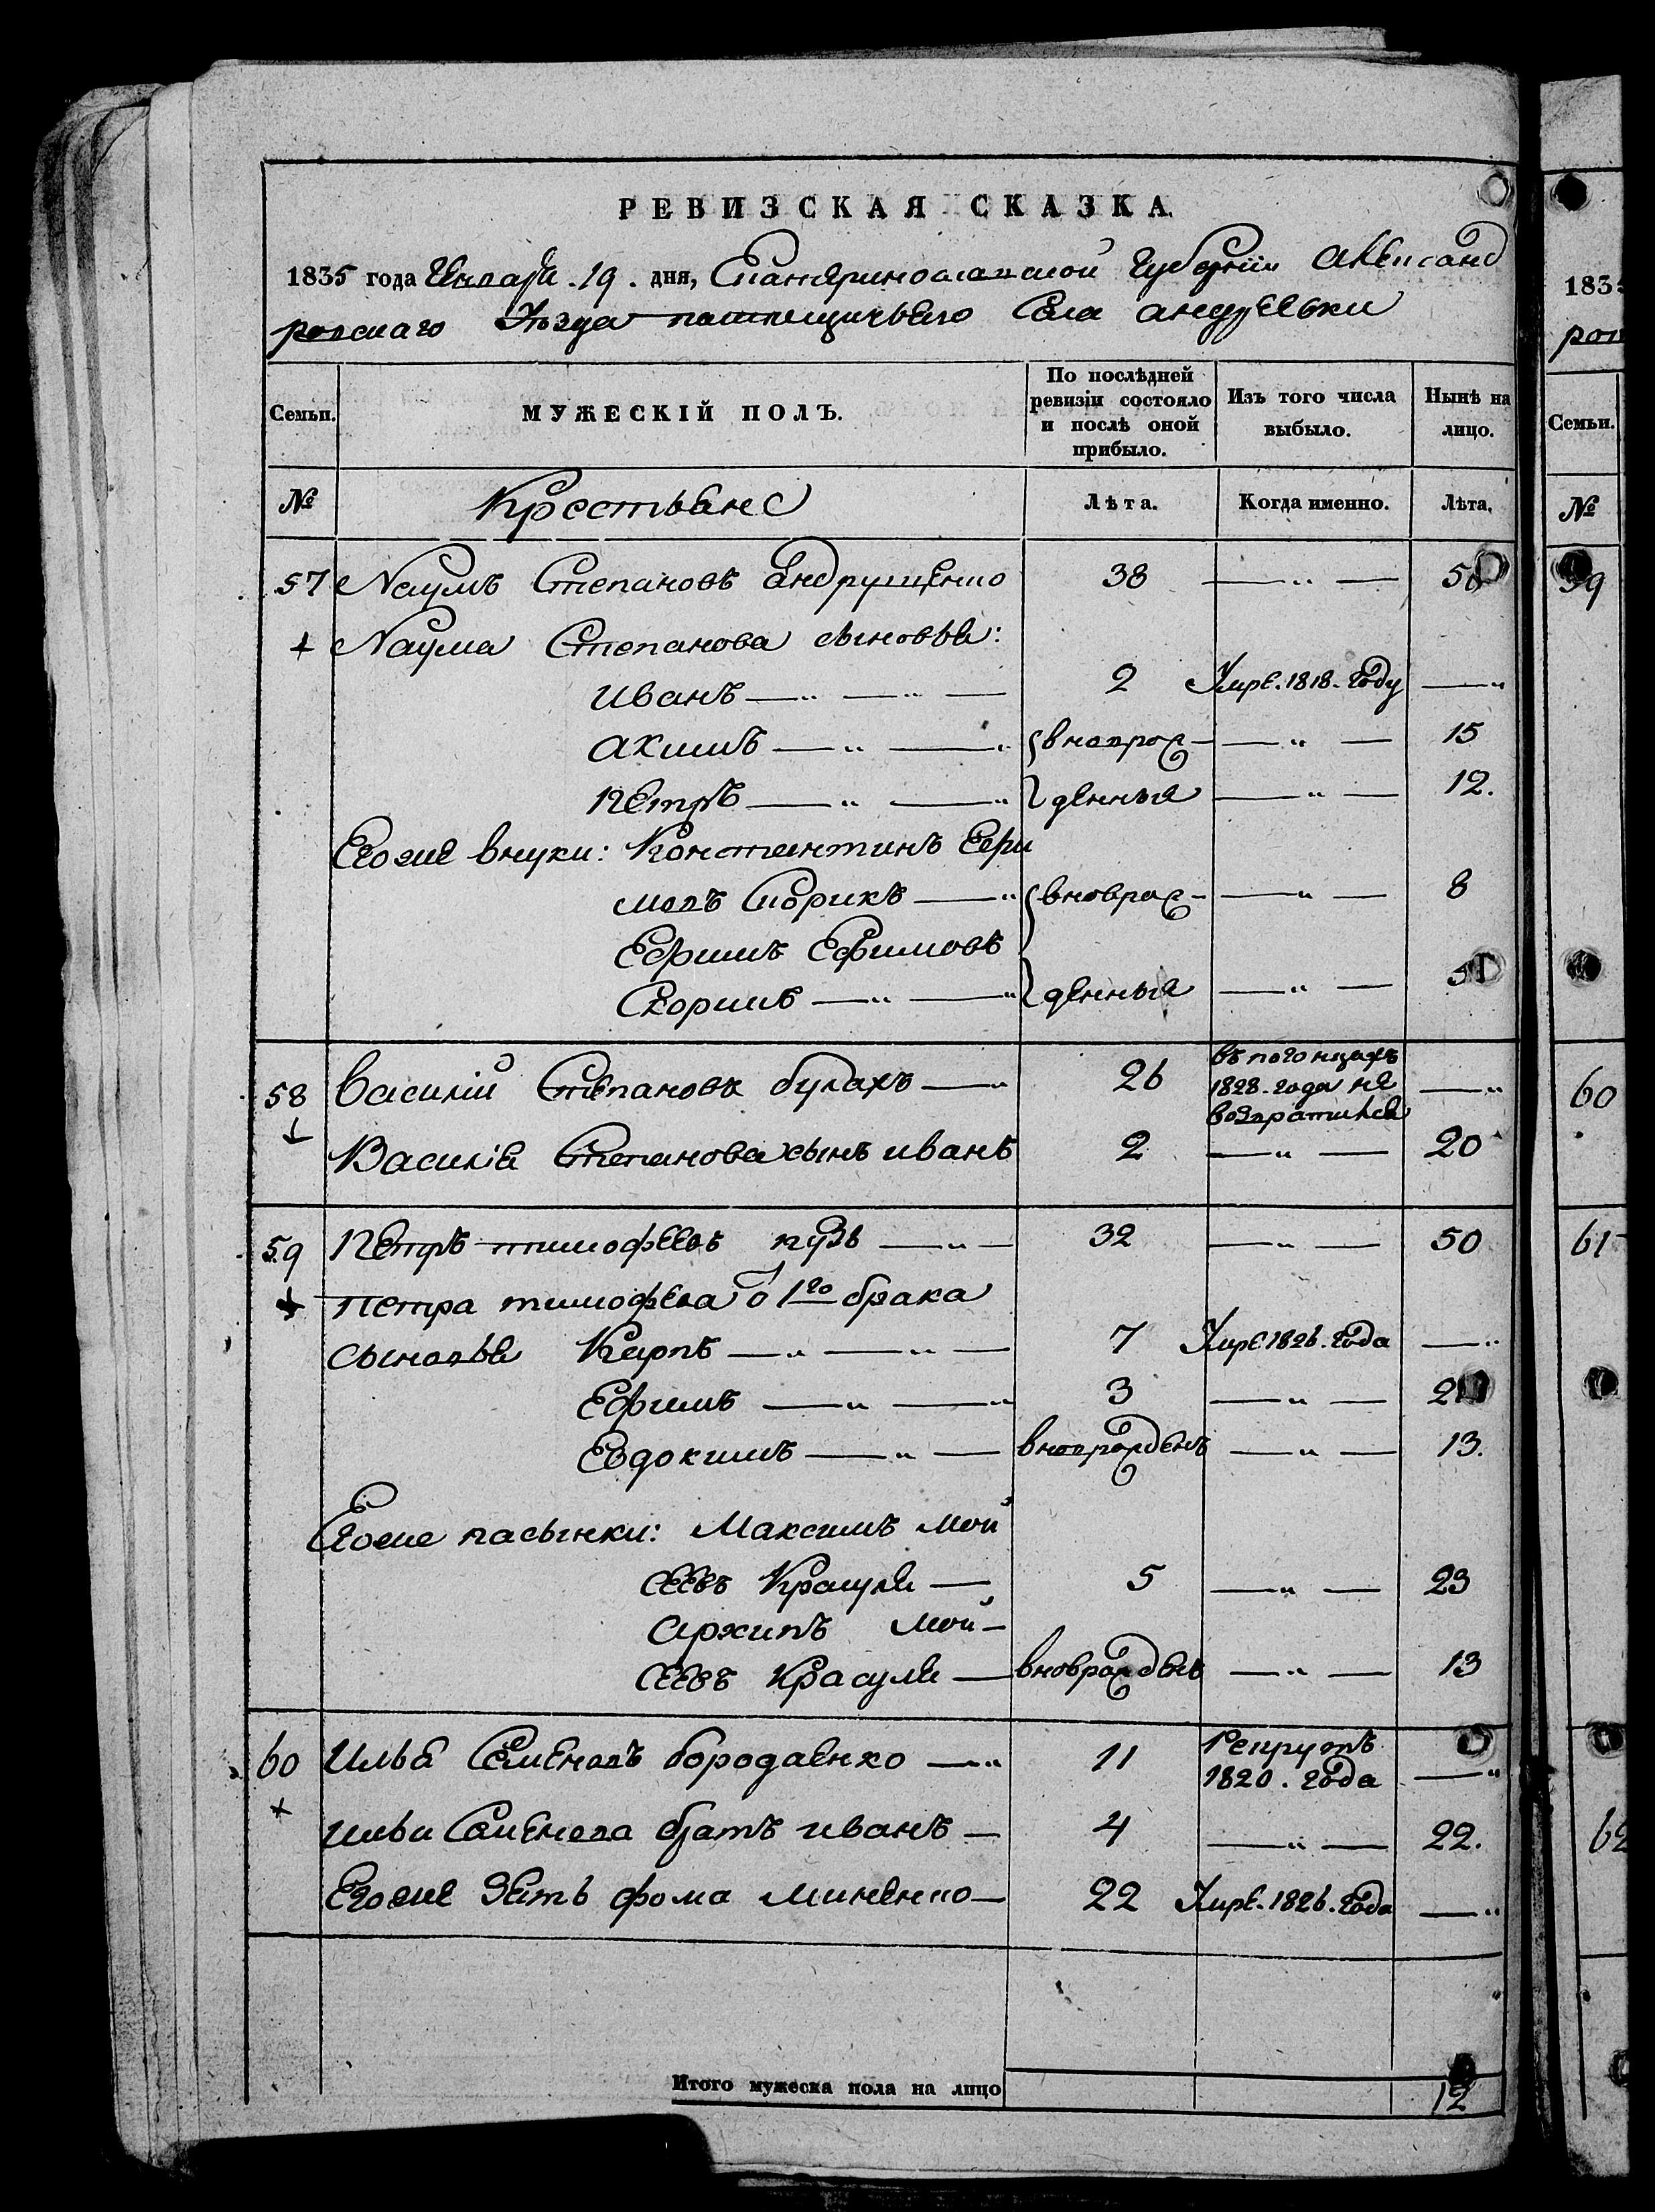 РЕВИЗСКАЯ СКАЗКА.
1835 года Генваря 19. дня, Екатеринославской Губернии Александ
ровскаго Уѣзда помѣщичьяго Села Андреевки
Семьи. МУЖЕСКІЙ ПОЛЪ. По послѣдней ревизіи состояло и послѣ оной прибыло. Изъ того числа выбыло. Нынѣ на лицо.
№ Крестьяне Лѣта. Когда именно. Лѣта.
57 Наумъ Степановъ Андрущенко 38 — „ —
Наума Степанова сыновья:
Иванъ — „ — „ — 2 Умре. 1818. Году — „
Акимъ — „ — „ вновьрож- — „ — 15
Петръ — „ — „ денныя — „ — 12.
Егоже внуки: Константинъ Ефи
мовъ — „ вновьрож- — „ — 8
Ефимъ Ефимовъ
— „ — „ денныя — „ —
58 Василій Степановъ булахъ — „ 26 1828. года не возвратился — „
Василія Степанова сынъ иванъ 2 — „ — 20
59 Петръ тимофеевъ пузь — „ — 32 — „ — 50
Петра тимофеева о 1го брака
сыновья Карпъ — „ — „ — 7 Умре 1826. Года — „
Ефимъ — „ — „ 3 — „ —
Евдокимъ — „ — вновьрожденъ — „ — 13.
Егоже пасынки: Максимъ Мой
сеевъ Красуля — 5 — „ — 23
Архипъ Мой-
сеевъ Красуля — вновьрожденъ — „ — 13
60 Илья Семеновъ бородаенко — „ 11 Рекрутъ 1820. Года — „
ильи Семенова братъ иванъ — 4 — „ — 22.
Егоже Зять фома Миненко — 22 Умре. 1826. Года — „
Итого мужеска пола на лицо 12
183
Семьи.
№
59
60
61
62